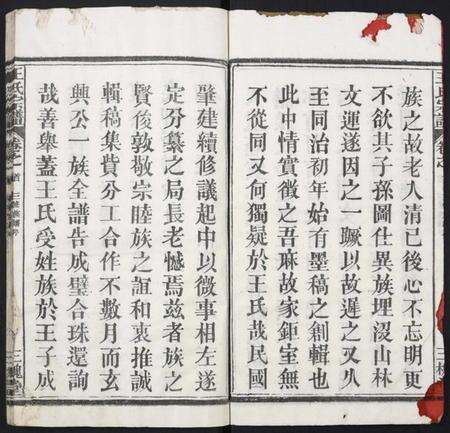 王氏宗譜
卷之
族之故老人清已後心不忘明更
不欲其子孫圖仕異族埋沒山林
文運遂因之一蹶以故遲之又久
至同治初年始有墨稿之創輯也
此中情實徵之吾麻故家鉅室無
不從同又何獨疑於王氏哉民國
肇建續修議起中以微事相左遂
定分纂之局長老憾焉兹者族之
賢俊敦敬宗睦族之誼和衷推誠
輯稿集貲分工合作不數月而玄
興公一族全譜告成璧合珠還詢
哉善舉蓋王氏受姓族於王子成
王氏宗譜
卷之首
三槐堂